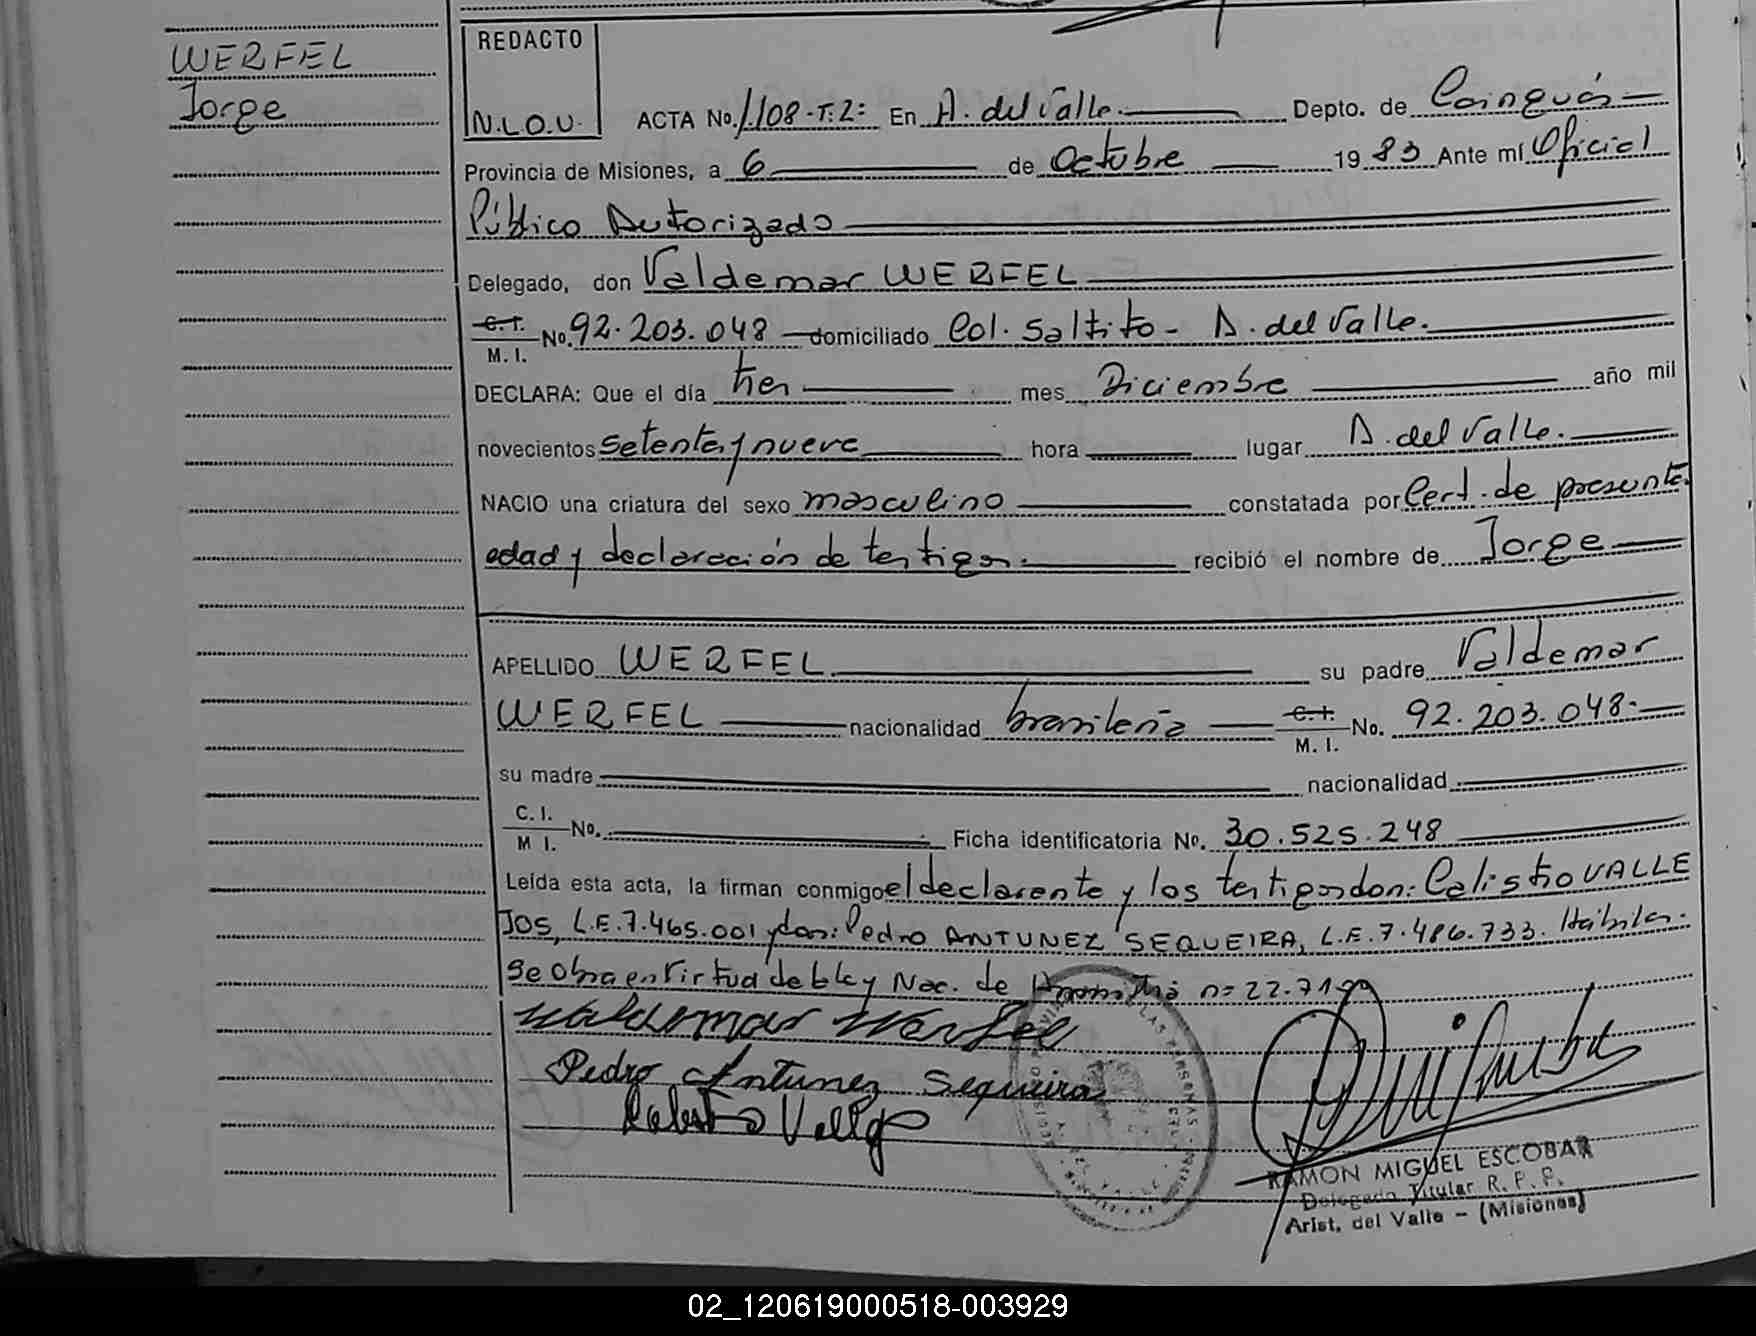 WERFEL
Jorge
REDACTO
N.L.O.U.
ACTA No. 1108-T:2: En A. del Valle. Depto. de Cainguás
Provincia de Misiones, a 6 de Octubre 19 83 Ante mí Oficial
Público Autorizado
Delegado, don Valdemar WERFEL
C.I. M.I. No. 92.203.048 domiciliado Col. Saltito - A. del Valle.
DECLARA: Que el día tres mes Diciembre año mil
novecientos setenta y nueve hora lugar A. del Valle.
NACIO una criatura del sexo masculino constatada por Cert. de presunta
edad y declaración de testigos. recibió el nombre de Jorge
APELLIDO WERFEL su padre Valdemar
WERFEL nacionalidad brasileña C.I. M.I. No. 92.203.048.
su madre nacionalidad
C.I. M I. No. Ficha identificatoria No. 30.525.248
Leída esta acta, la firman conmigo el declarante y los testigos don: Calistro VALLE
JOS, L.E. 7.465.001 y don: Pedro ANTUNEZ SEQUEIRA, L.E. 7.486.733. Hábiles.
Se obra en virtud de la ley Nac. de Amnistía n=
Waldemar Werfel
Pedro Antunez Sequeira
RAMON MIGUEL ESCOBAR
Delegado Titular R. P. P.
Arist. del Valle - (Misiones)
02_120619000518-003929